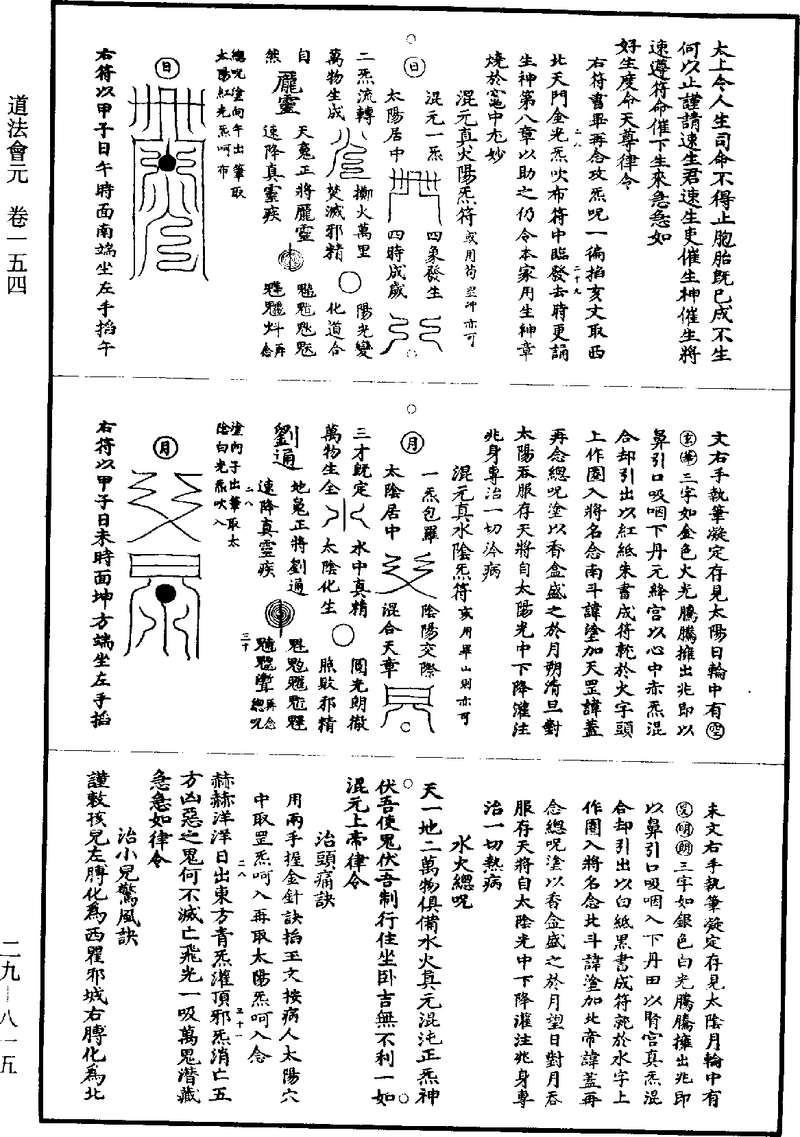 道法會元　卷一五四
二九—八一五
太上令人生司命不得止胞胎既已成不生
何以止謹請速生君速生吏催生神催生將
速遵符命催下生來急急如
好生度命天尊律令
右符書畢再念攻炁呪一徧掐亥文取西
二八
二十九
北天門金光炁吹布符中臨發去時更誦
生神第八章以助之仍令本家用生神章
燒於竈中尤妙
混元真火陽炁符或用苟畢冲亦可
日
混元一炁
四象發生
太陽居中
四時成歲
二炁流轉
擲火萬里
陽光變
萬物生成
焚滅邪精
化道合
自
天鬼正將龐靈
然
龐靈
速降真靈疾
再念
總呪塗向午出筆取
太陽紅光炁呵布
日
右符以甲子日午時面南端坐左手掐午
文右手執筆凝定存見太陽日輪中有
三字如金色火光騰騰擁出兆即以
鼻引口吸咽下丹元絳宫以心中赤炁混
合却引出以紅紙朱書成符就於火字頭
上作圈入將名念南斗諱塗加天罡諱蓋
再念總呪塗以香盒盛之於月朔清旦對
太陽吞服存天將自太陽光中下降灌注
兆身專治一切冷病
混元真水陰炁符或用畢山則亦可
月
一炁包羅
陰陽交際
太陰居中
混合天章
三才既定
水中真精
圓光朗徹
萬物生全
太陰化生
照敗邪精
劉通
地鬼正將劉通
速降真靈疾
再念
總呪
三十
塗向子出筆取太
二八
陰白光炁吹入
月
右符以甲子日未時面坤方端坐左手掐
未文右手執筆凝定存見太陰月輪中有
三字如銀色白光騰騰擁出兆即
以鼻引口吸咽入下丹田以腎宫真炁混
合却引出以白紙黑書成符就於水字上
作圈入將名念北斗諱塗加北帝諱蓋再
念總呪塗以香盒盛之於月望日對月吞
服存天將自太陰光中下降灌注兆身專
治一切熱病
水火總呪
天一地二萬物俱備水火真元混沌正炁神
伏吾使鬼伏吾制行住坐卧吉無不利一如
混元上帝律令
治頭痛訣
用兩手握金針訣掐玉文按病人太陽穴
中取罡炁呵入再取太陽炁呵入念
二八
三十一
赫赫洋洋日出東方青炁灌頂邪炁消亡五
方凶惡之鬼何不滅亡飛光一吸萬鬼潛藏
急急如律令
治小兒驚風訣
謹敕孩兒左膊化為西瞿邪城右膊化為北